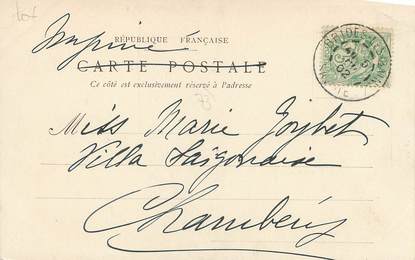 RÉPUBLIQUE FRANÇAISE
Imprimé
CARTE POSTALE
Ce côté est exclusivement réservé à l'adresse
Miss Marie Goybet
Villa Saïgonnaise
Chambéry